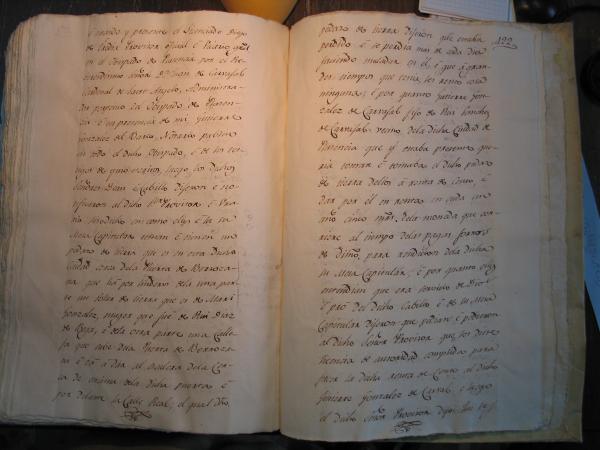 estando y presente el licenciado Diego
en el Obispado de Plasencia por el Re
verendisimo señor Dn Juan de Carvajal
Cardenal de Sant Angelo, Administra
dor perpetuo del Obispado de Plasen
cia: e en presencia de mi, Gutierre
Gonzalez del Barco, Notario publico
en todo el dicho Obispado, e de los tes
tigos de yuso escritos, luego los dichos
señores Dean e Cabildo dijeron e no
tificaron al dicho Sr Provisor e Vica
rio
Mesa Capitular tienen un
pedazo de tierra que es en esta dicha
Ciudad cerca de la Puerta de Berroza
na que ha por linderos de la una par
te un solar de tierra que es de Mari
Gonzalez, muger que fue de Rui Diaz
de Roxas, e de la otra parte una Calle
ja que sube a la Puerta de Berroza
na
ca de encima de la dicha puerta e
por delante la Calle Real, el qual dho
199
pedazo de tierra dijeron que estaba
perdido e se perdia mas de cada dia
faciendo muladar en el, e que a gran
des tiempos que tenia los renta cosa
ninguna; e por quanto Gutierre Gon
zalez de Carvajal fijo de Rui Sanchez
de Carvajal vecino de la dicha Ciudad de
Plasencia que y estaba presente que
ria tomar e tomaba el dicho pedazo
de tierra dellos a renta de censo, e
dar por el en renta en cada un
año cinco mrs de la moneda que cor
riere al tiempo de las pagas
para
su Mesa Capitular; e por quanto ellos
entendian que era servicio de Dios
e pro del dicho Cabildo e de su Mesa
Capitular dijeron que pedian e pidieron
al dicho señor Provisor que les diese
licencia de autoridad cumplida para
facer la dicha renta de censo al dicho
Gutierre Gonzalez de Carvajal e luego
el dicho señor Provisor dijo